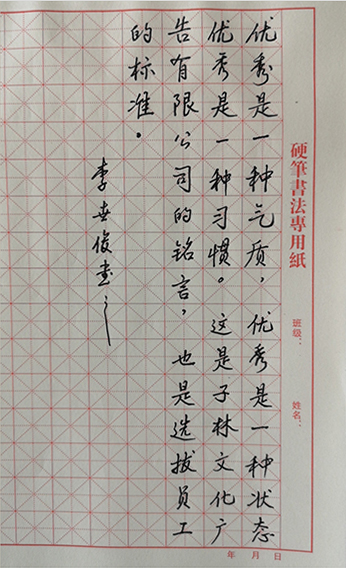 硬筆書法專用紙
班级：
姓名：
优秀是一种气质，优秀是一种状态
优秀是一种习惯。这是子林文化广
告有限公司的铭言，也是选拔员工
的标准。
李喜俊书
年 月 日